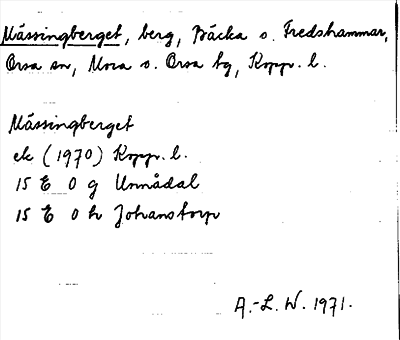 Mässingberget, berg, Bäcka o. Fredshammar,
Orsa sn, Mora o. Orsa tg, Kopp. l.
Mässingberget
ek (1970) Kopp. l.
15 E 0 g Unnådal
15 E 0 h Johanstorp
A.-L. W. 1971.